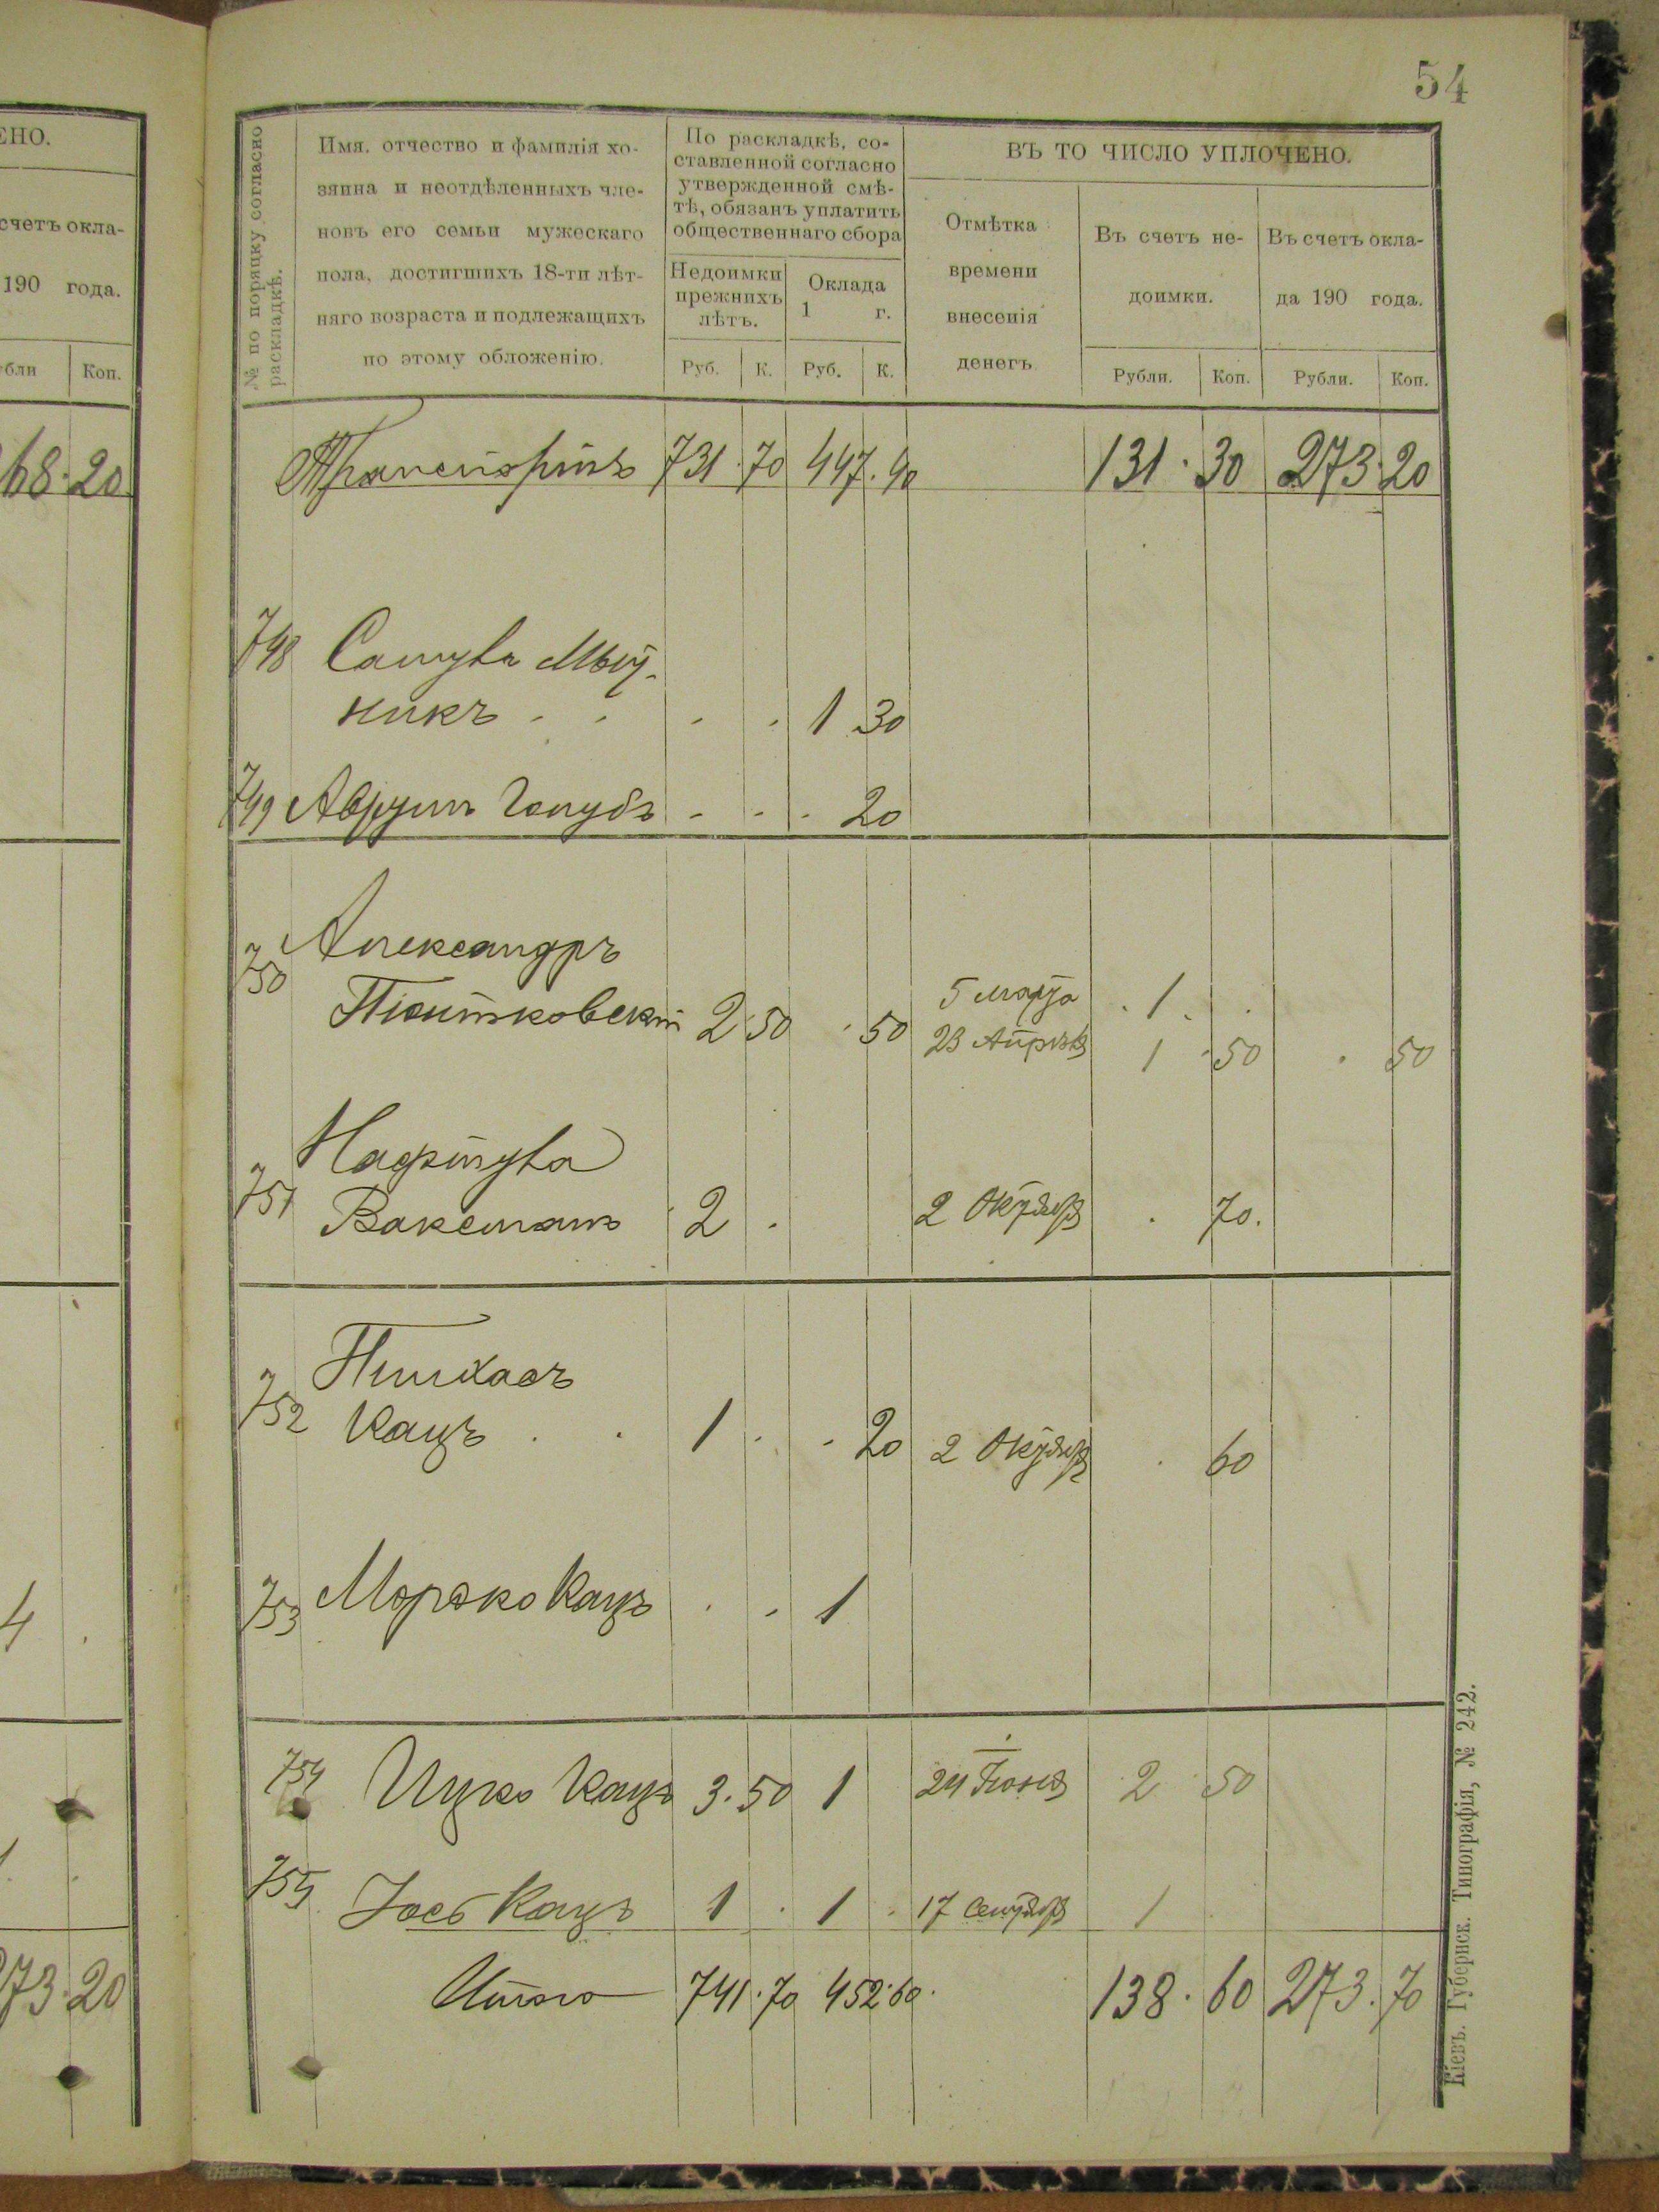 54
ЕНО.
счетъ окла-
190 года.
Коп.
68 20
4
73 20
№ по порядку согласно
раскладкѣ.
Имя, отчество и фамилія хо-
зяина и неотдѣленныхъ чле-
новъ его семьи мужескаго
пола, достигшихъ 18-ти лѣт-
няго возраста и подлежащихъ
по этому обложенію.
По раскладкѣ, со-
ставленной согласно
утвержденной смѣ-
тѣ, обязанъ уплатить
общественнаго сбора
Недоимки
прежнихъ
лѣтъ.
Оклада
1 г.
Руб. К. Руб. К.
ВЪ ТО ЧИСЛО УПЛОЧЕНО.
Отмѣтка
времени
внесенія
денегъ
Въ счетъ не-
доимки.
Въ счетъ окла-
да 190 года.
Рубли. Коп. Рубли. Коп.
Транспортъ 731 70 447 40 131 30 273 20
748
никъ 1 30
749 Аврумъ Голубъ 20
750 Александръ
2 50 50 5 марта 1
23 Апрѣля 1 50 50
751 Нафтула
Ваксманъ 2 2 Октября 70
752 Пинхасъ
Кацъ 1 20 2 Октября 60
753 Мордко Кацъ 1
754 Ицко Кацъ 3 50 1 24 Іюня 2 50
755 Іось Кацъ 1 1 17 Сентября 1
Итого 741 70 452 60 138 60 273 70
Кіевъ. Губернск. Типографія, № 242.